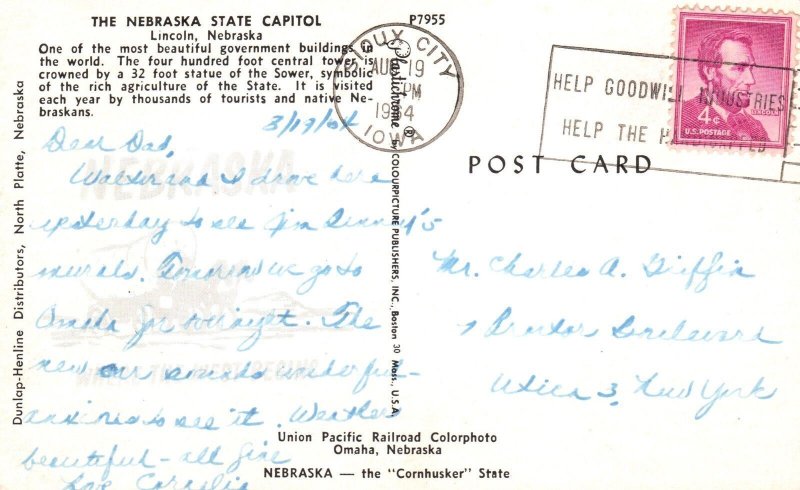 THE NEBRASKA STATE CAPITOL
Lincoln, Nebraska
P7955
One of the most beautiful government buildings in
the world. The four hundred foot central tower is
crowned by a 32 foot statue of the Sower, symbolic
of the rich agriculture of the State. It is visited
each year by thousands of tourists and native Ne-
braskans.
SIOUX CITY
AUG 19
PM
1964
IOWA
HELP GOODWILL INDUSTRIES
HELP THE HANDICAPPED
4¢
U.S. POSTAGE
LINCOLN
Dunlap-Henline Distributors, North Platte, Nebraska
Plastichrome ® by COLOURPICTURE PUBLISHERS, INC., Boston 30 Mass., U.S.A.
POST CARD
8/19/64
Dear Dad,
Walter and I drove here
yesterday to see Jim Penney's
murals. Tomorrow we go to
Omaha for overnight. The
new car sounds wonderful-
and to see it. Weather
beautiful - all fine
Love Cornelia
Mr. Charles A. Griffin
Boulevard
Utica 3, New York
NEBRASKA
Union Pacific Railroad Colorphoto
Omaha, Nebraska
NEBRASKA — the "Cornhusker" State